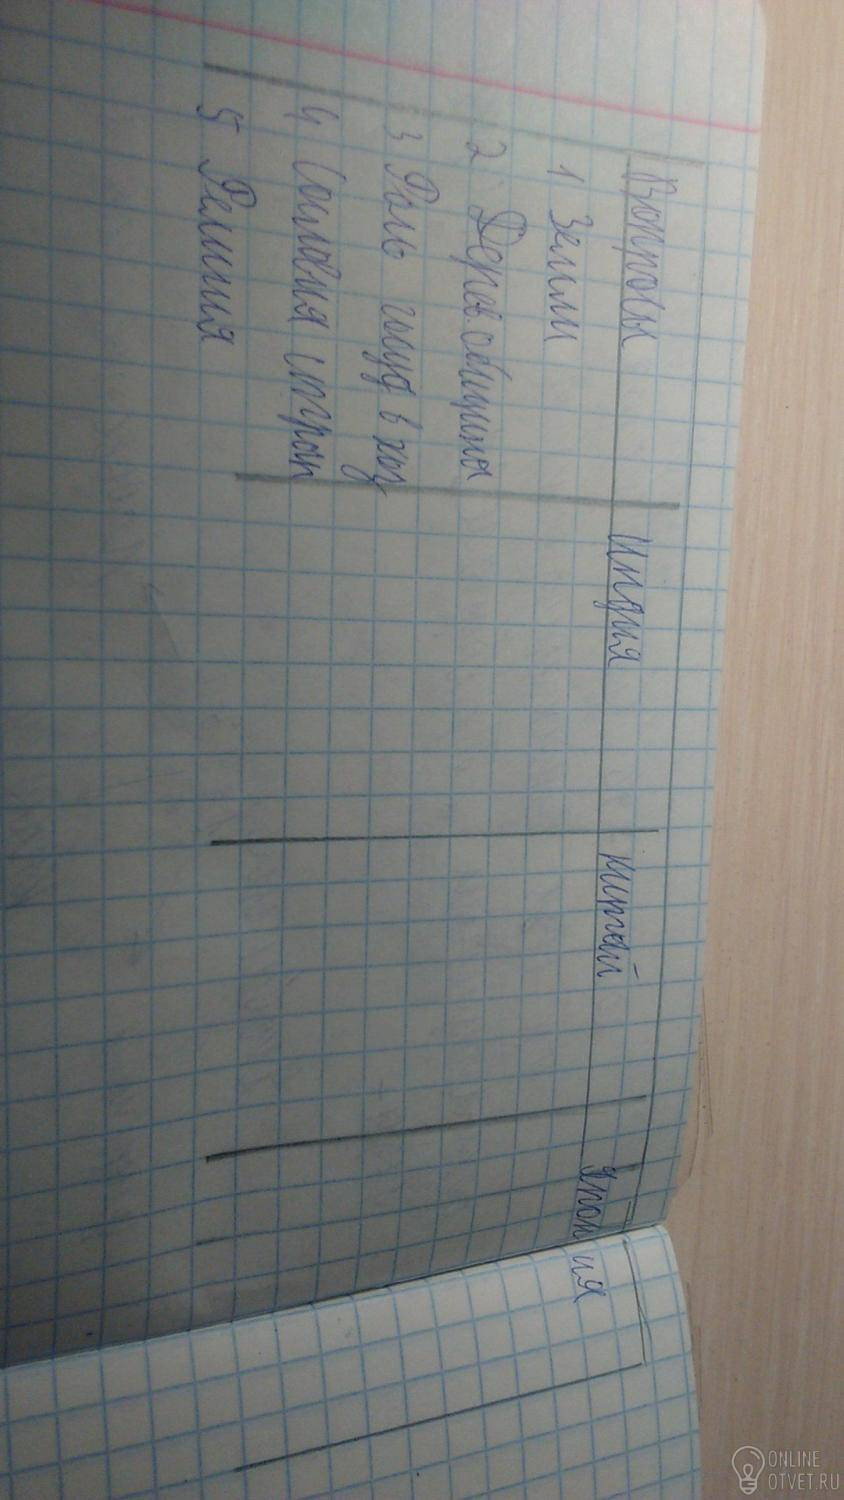 Вопросы Индия Китай Япония
1 Земли
2 Дерев община
3 Роль госуд в хоз
4 Сословия стран
5 Религия
ONLINE
OTVET.RU